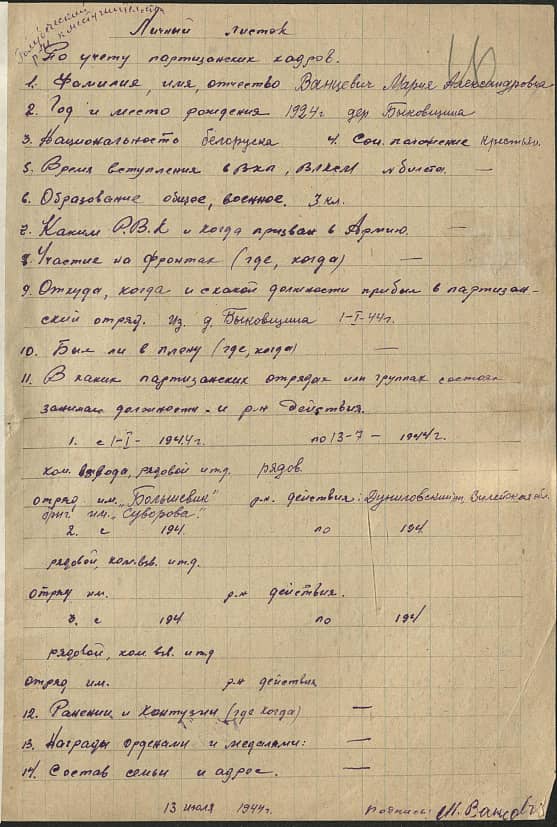 Личный листок
По учету партизанских кадров.
1. Фамилия, имя, отчество Ванцевич Мария Александровна
2. Год и место рождения 1924г. дер Быковщина
3. Национальность белоруска 4. Соц. положение крестьян.
5. Время вступления в ВКП, ВЛКСМ № билета. —
6. Образование общее, военное. 3 кл.
7. Каким Р.В.К и когда призван в Армию. —
8. Участие на фронтах (где, когда) —
9. Откуда, когда и с какой должности прибыл в партизан-
ский отряд. Из д. Быковщина 1-I-44г.
10. Был ли в плену (где, когда) —
11. В каких партизанских отрядах или группах состоял
занимал должности и р-н действия.
1. с 1-I- 1944г. по 13-7- 1944г.
ком. взвода, рядовой и т.д. рядов.
отряд им. "Большевик" р.н. действия: Дуниловский рн, Вилейская обл.
бриг. им. "Суворова".
2. с 194. по 194
рядовой, ком. взв. и т.д.
отряд им. р-н действия.
3. с 194 по 194
рядовой, ком. взв. и т.д
отряд им. р-н действия
12. Ранении и контузии (где когда) —
13. Награды орденами и медалями: —
14. Состав семьи и адрес. —
13 июля 1944г. Подпись: М. Ванцевич